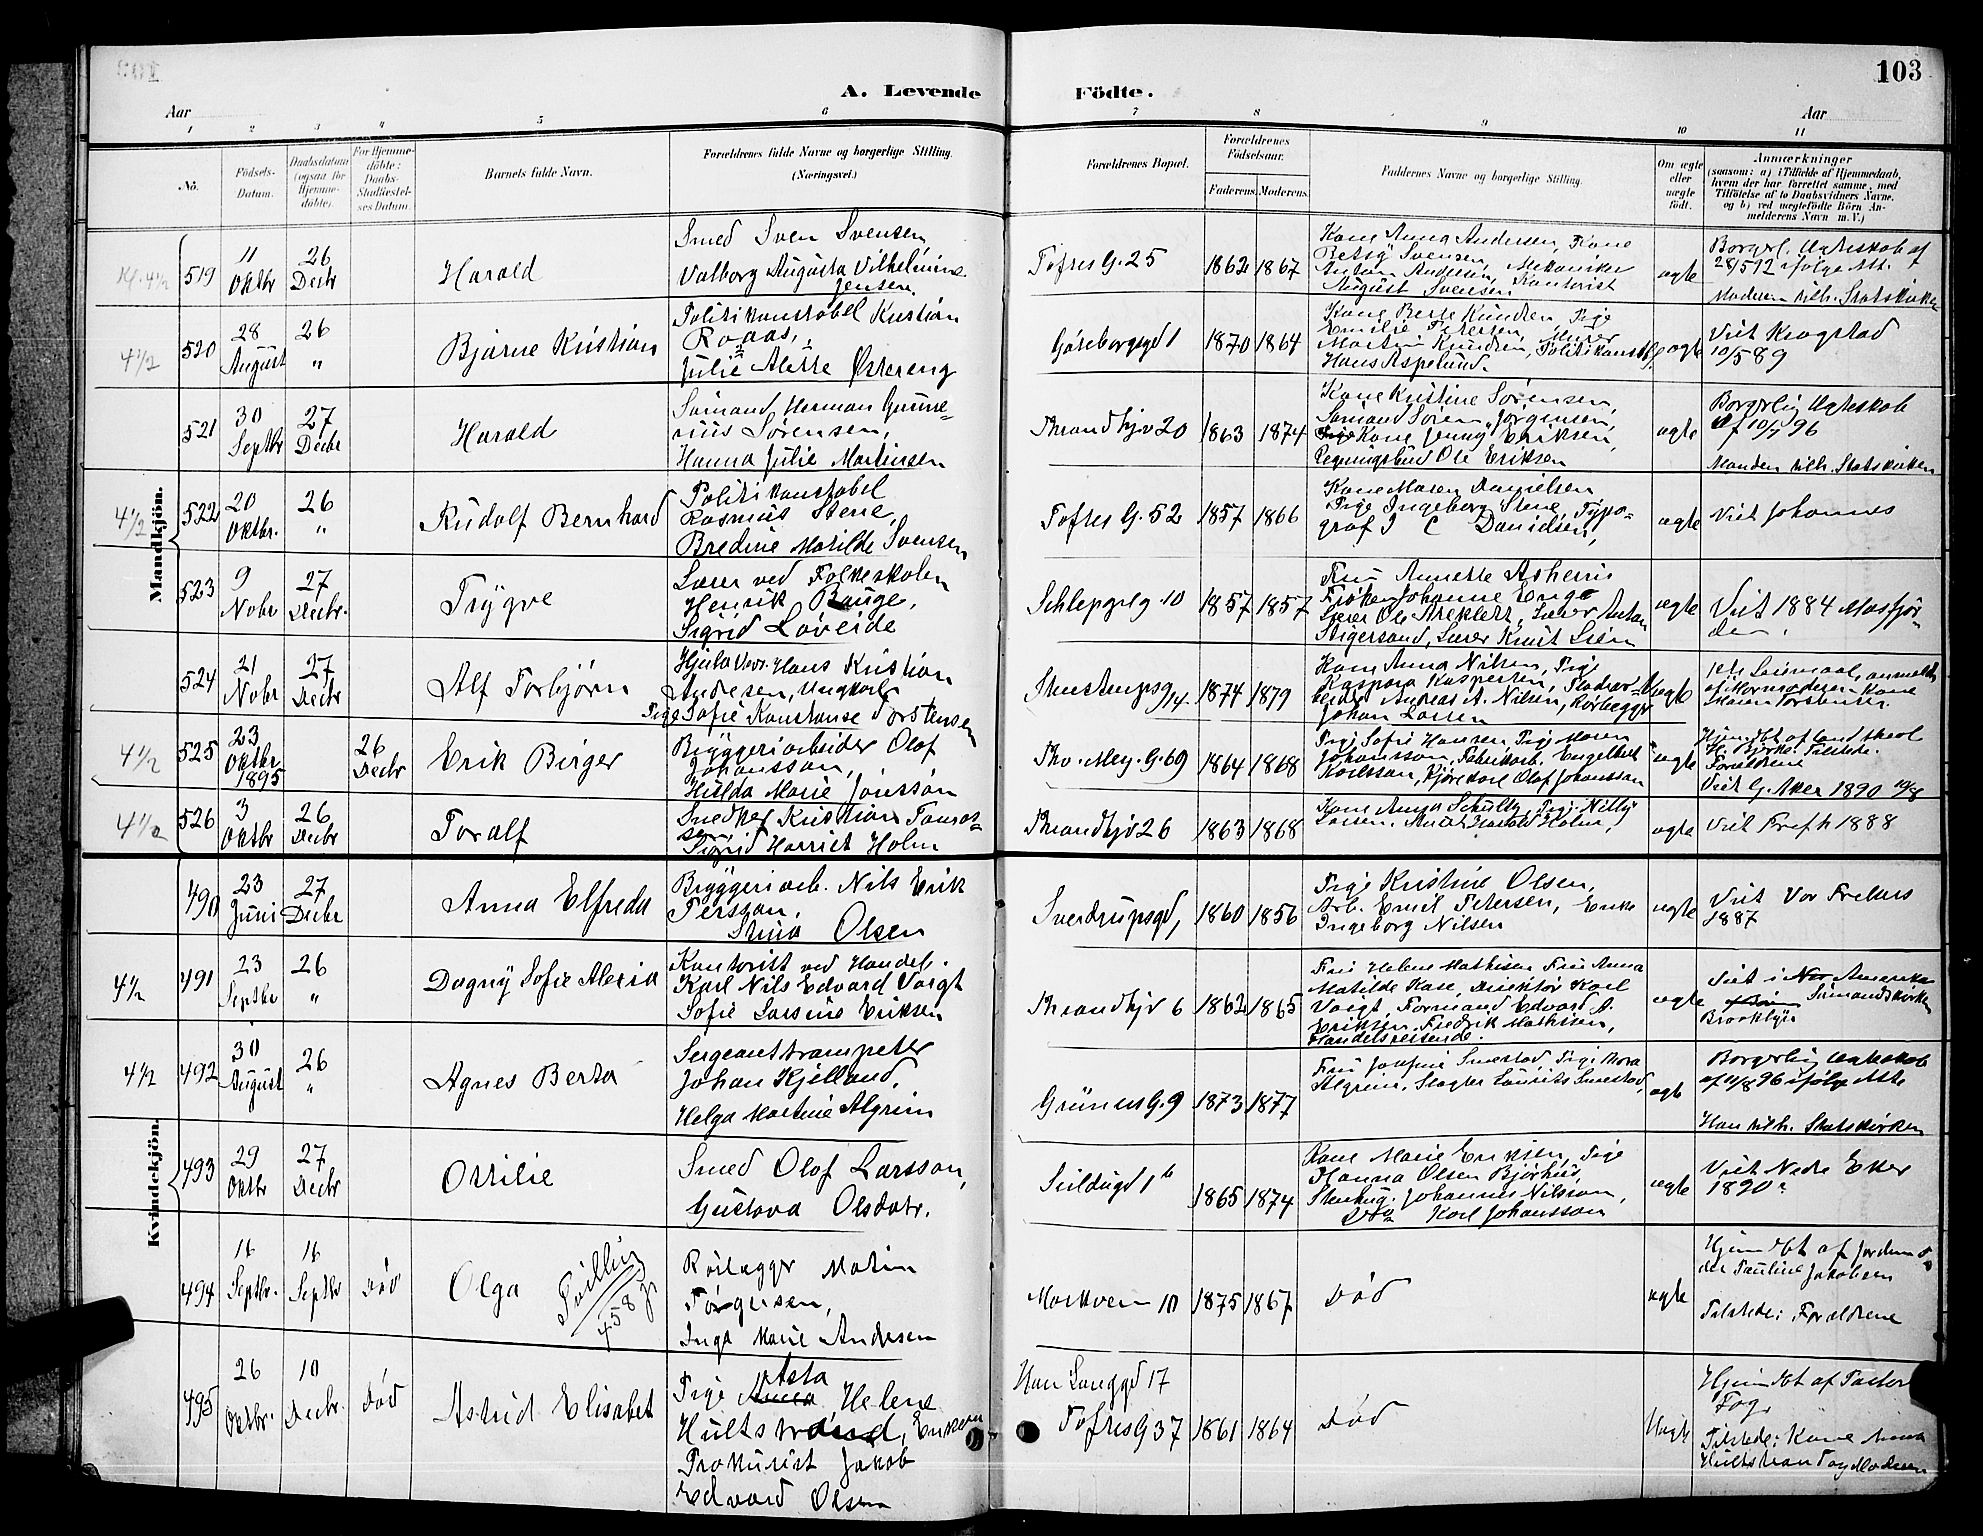 103
A. Levende Födte.
Aar
Aar
1 2 3 4 5 6 7 8 9 10 11
No.
Födsels-Datum.
Daabsdatum (ogsaa for Hjemme-döbte).
For Hjemme-döbte: Daabs-Stadfæstel-ses Datum.
Barnets fulde Navn.
Forældrenes fulde Navne og borgerlige Stilling.
(Næringsvei.)
Forældrenes Bopæl.
Forældrenes Födselsaar.
Faderens. Moderens.
Faddernes Navne og borgerlige Stilling.
Om ægte eller uægte födt.
Anmærkninger
(saasom: a) i Tilfælde af Hjemmedaab,
hvem der har forrettet samme, med
Tilföielse af to Daabsvidners Navne,
og b) ved uægtefödte Börn An-
melderens Navn m. V.)
Mandkjön.
Kl. 4½ 519 11 Oktbr 26 Decbr Harald
Smed Sven Svensen,
Valborg Augusta Vilhelmine
Jensen
Toftes G. 25 1862 1867
Kone Anna Andersen, Kone
Betsy Svensen, Mekaniker
Anton Andersen, Kontorist
August Svensen
ægte
Borgerl. Ægteskab af
28/5 92 ifølge Att.
Moderen tilh. Statskirken
4½ 520 28 August 26 " Bjarne Kristian
Politikonstabel Kristian
Roaas,
Julie Alette Østereng
Göteborggd 1 1870 1864
Kone Berte Knudsen, Pige
Emilie Petersen, Murer
Martin Knudsen, Politikonstb.
Hans Aspelund.
ægte
Viet Krogstad
10/5 89
521 30 Septbr 27 Decbr Harald
Sömand Herman Gunne-
rius Sørensen,
Hanna Julie Martinsen
Throndhjv 20 1863 1874
Kone Kristine Sørensen,
Sömand Sören Jörgensen,
Kone Jenny Eriksen,
Regningsbud Ole Eriksen
ægte
Borgerlig Ægteskab
af 10/7 96
Manden tilh. Statskirken
4½ 522 20 Oktbr. 26 " Rudolf Bernhard
Politikonstabel
Rasmus Stene,
Bredine Matilde Svensen
Toftes G. 52 1857 1866
Kone Maren Danielsen
Pige Ingeborg Stene, Typo-
graf J C Davidsen,
ægte
Viet Johannes
523 9 Novbr 27 Decbr. Trygve
Lærer ved Folkeskolen
Henrik Bauge,
Sigrid Løveide
Schleppelg 10 1857 1857
Fru Annette
Frøken Johanne Enge
Lærer Ole, Lærer Anton
Stigersand, Lærer Knut Lien
ægte
Viet 1884 Masfjor-
den.
524 21 Novbr 27 Decbr Alf Torbjörn
Hjula Væv. Hans Kristian
Andresen, Ungkarl
Pige Sofie Konstanse Torstensen
Steenstrupsg 14 1874 1879
Kone Anna Nilsen, Pige
Kaspara Kaspersen,
Andreas A. Nilsen, Rørlægger
Johan Larsen
Uægte
1ste Leiermaal, anmeldt
af Mormoderen Kone
Maren Torstensen.
4½ 525 23 Oktbr 1895 26 Decbr Erik Birger
Bryggeriarbeider Olof
Johansson,
Hilda Marie Jonsson
Tho. Mey. G. 69 1864 1868
Pige Sofie Hansen, Pige Maren
Johansson, Fabrikarb. Engelbrekt
Karlsson, Kjørekarl Olof Johansson
ægte
Hjemdbt af landskeol
H. Bjerke. Tilstede:
Forældrene
Viet G. Aker 1890 10/8
4½ 526 3 Oktbr 26 Decbr Toralf
Snedker Kristian
Sigrid Harriet Holm
Throndhjv 26 1863 1868
Kone Anna Schultz, Pige Nilly
Larsen, Harald Holm,
ægte
Viet Trefh 1888
Kvindekjön.
490 23 Juni 27 Decbr Anna Elfreda
Bryggeriarb. Nils Erik
Persson,
Stina Olsen
Sverdrupsgd, 1860 1856
Pige Kristine Olsen,
Arb. Emil Petersen, Enke
Ingeborg Nilsen
ægte
Viet Vor Frelsers
1887
4½ 491 23 Septbr 26 " Dagny Sofie Alexia
Kontorist ved Handel.
Karl Nils Edvard Voigt
Sofie Larsine Eriksen
Throndhjv 6 1862 1865
Fru Helene Mathisen Fru Anna
Matilde Kase, Direktör Karl
Voigt, Formand Edvard A.
Eriksen, Fredrik Mathisen,
Handelsreisende.
ægte
Viet i Amerika
Sömandskirken
Brooklyn
4½ 492 30 August 26 " Agnes Berta
Sergeanttrompeter
Johan Kjelland,
Helga Martine Algrim
Grünners G. 9 1873 1877
Fru Josefine Smestad, Pige Nora
Algrim, Slagter Laurits Smestad,
ægte
Borgerlig Ægteskab
af 11/8 96 ifølge Atte
Han tilh. Statskirken
493 29 Oktbr 27 Decbr Ottilie
Smed Olof Larsson,
Gustava Olsdatr.
Seildugd 1b 1865 1874
Kone Marie Eriksen, Pige
Hanna Olsen Bjørhus,
Stenhug. Johannes Nilsson,
Do Karl Johansson
ægte
Viet Nedre Eker
1890
494 16 Septbr. 16 Septbr Död Olga
Tvilling
458 J.
Rörlægger Martin
Jörgensen,
Inga Marie Andersen
Markvein 10 1875 1867
Död
ægte
Hjemdbt af Jordemo
der Pauline Jakobsen
Tilstede: Forældrene
495 26 Oktbr. 10 Decbr. Död Astrid Elisabet
Asta
Pige Anna Helene
Hultstrand, Enkem
Prokurist Jakob
Edvard Olsen
Han Langgd 17
Toftes G 37 1861 1864
Död
Uægte
Hjemdbt af Pastor
Fog.
Tilstede: Kone
Hultstrand og Moderen